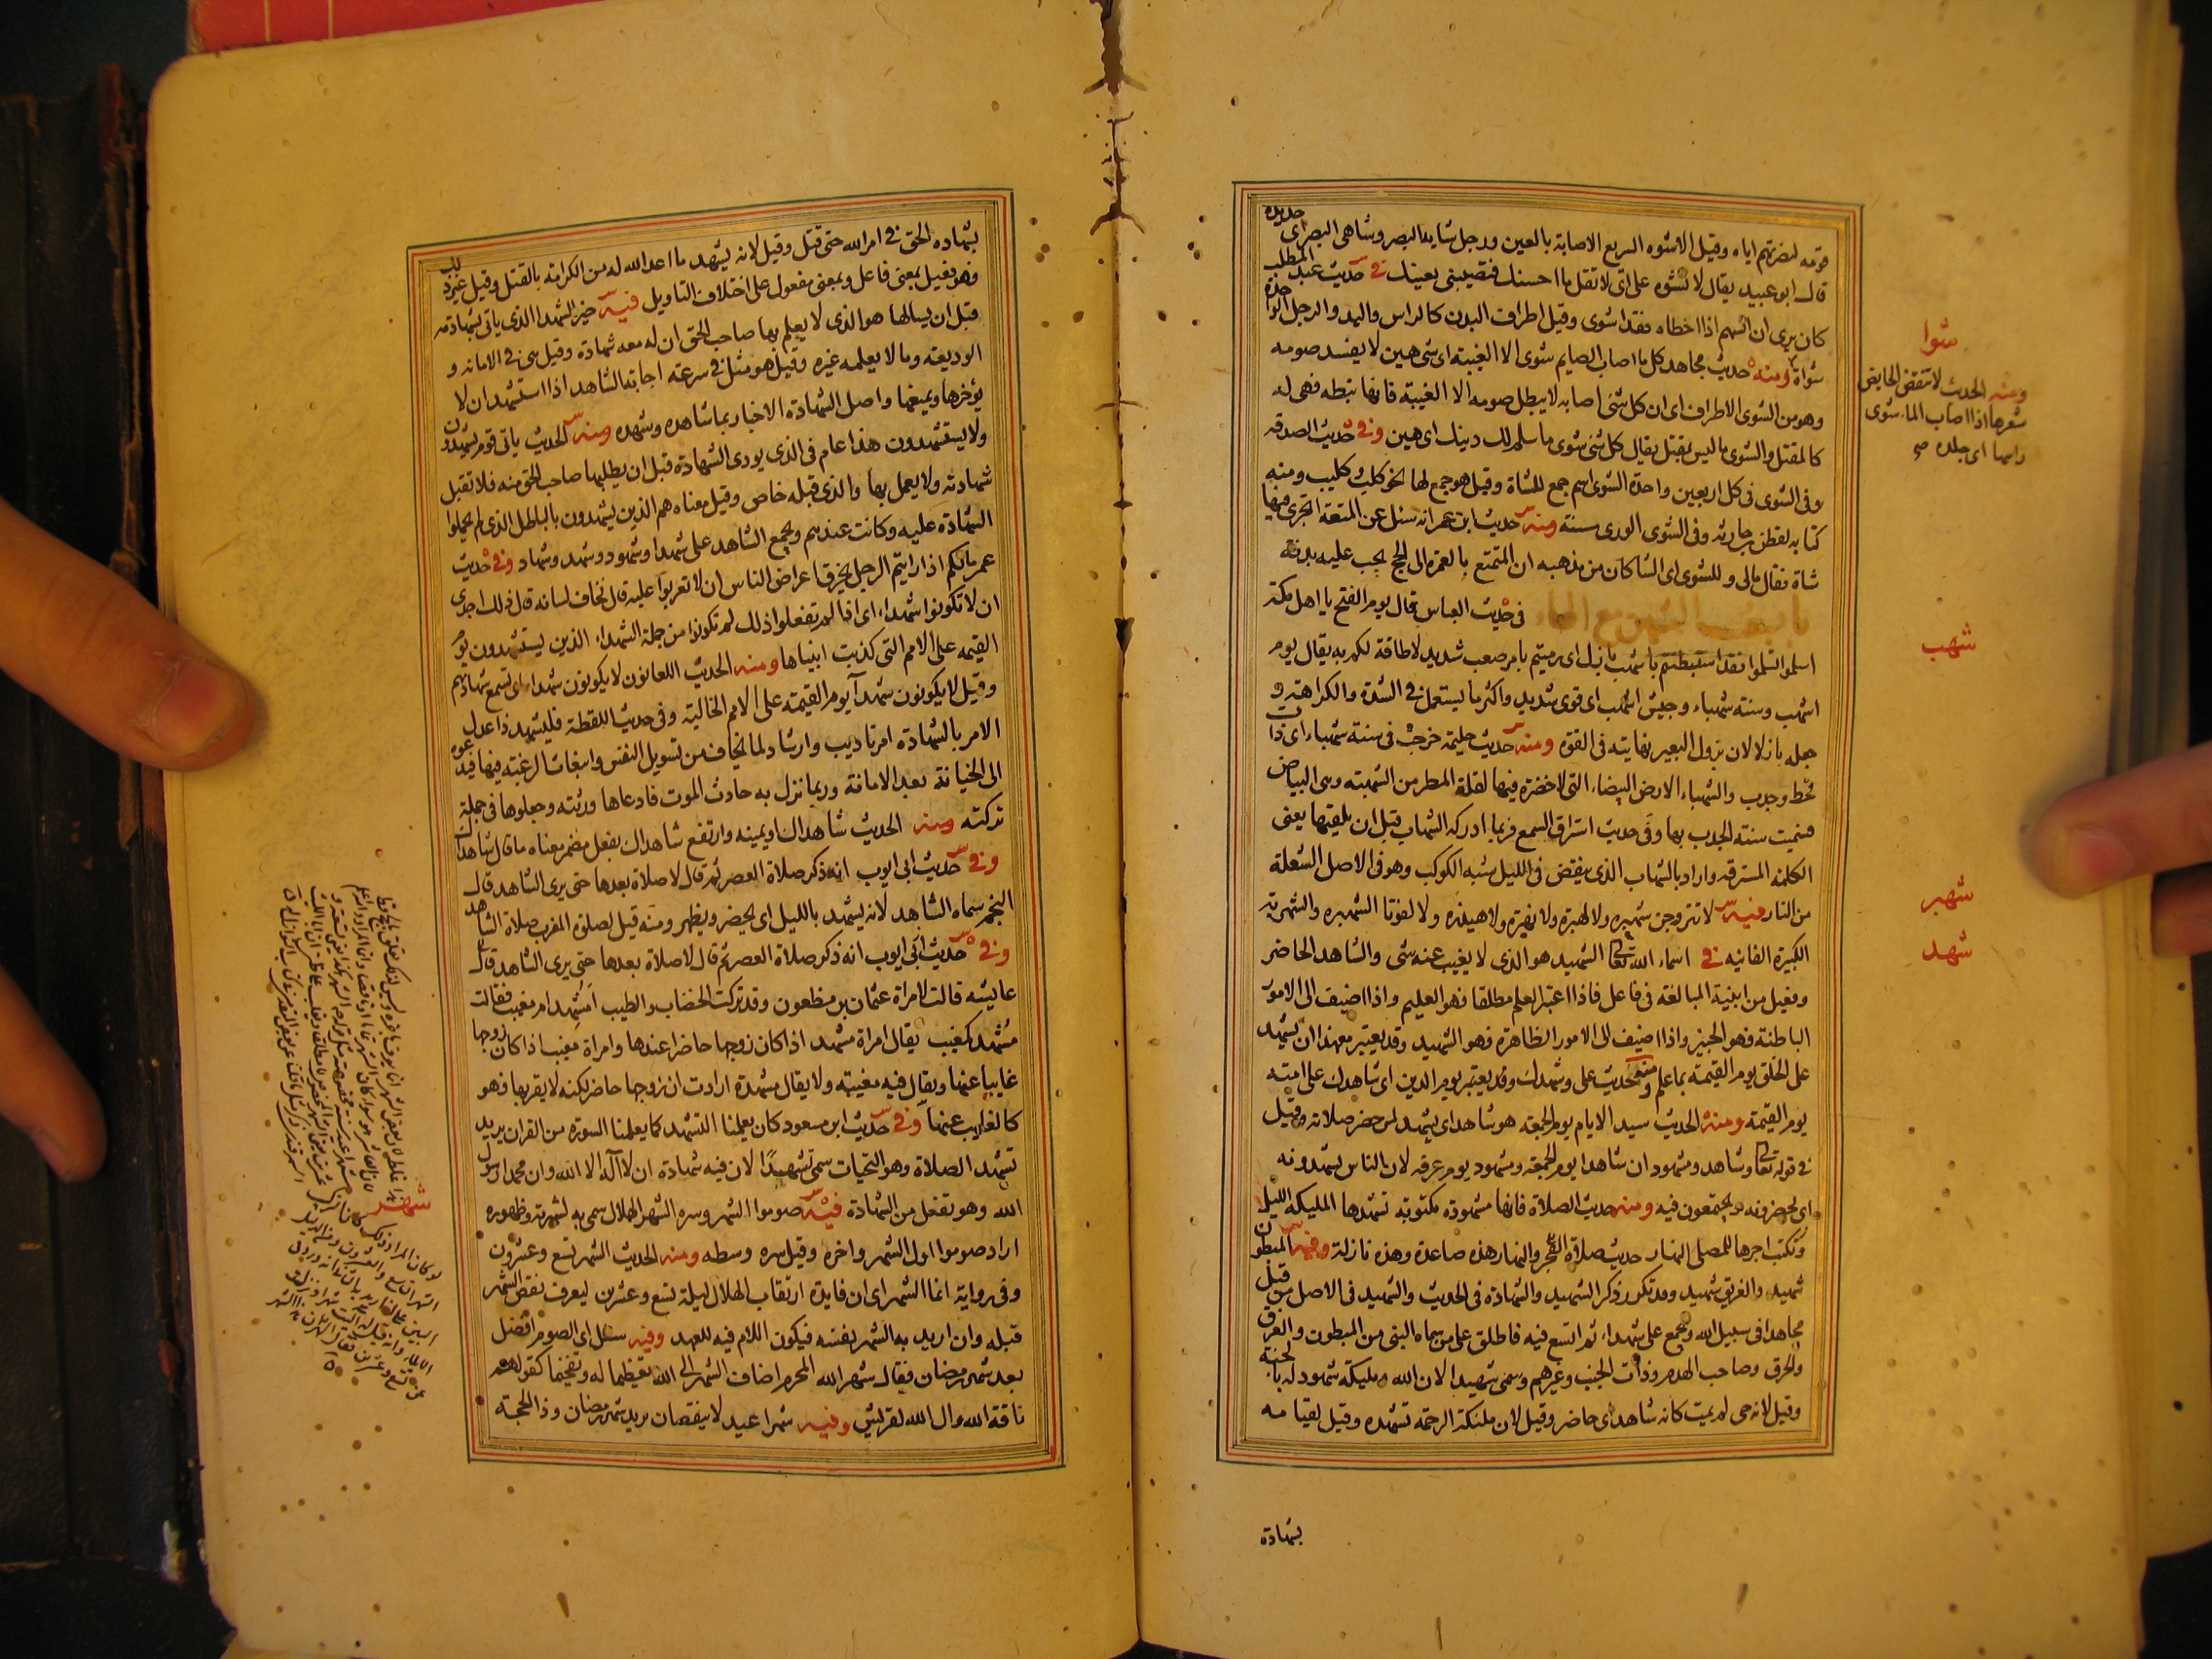 قومه لنصرتهم اياه وقيل الاشوه السريع الاصابة بالعين ورجل شايه البصر وشاهى البصر اى حديده
قال ابو عبيد يقال لا تشوه على اى لا تقل ما احسنك فتصيبنى بعينك فى حديث عبد المطلب
كان يرى ان السهم اذا اخطاه فقد اشوى وقيل اطراف البدن كالراس واليد والرجل الواحدة
شواة ومنه حديث مجاهد كل ما اصاب الصايم شوى الا الغيبة اى شى هين لا يفسد صومه
وهو من الشوى الاطراف اى ان كل شى اصابه لا يبطل صومه الا الغيبة فانها تبطله فهى له
كالمقتل والشوى ما ليس بمقتل يقال كل شى شوى ما سلم لك دينك اى هين وفى حديث الصدقه
وفى الشوى فى كل اربعين واحدة الشوى اسم جمع للشاة وقيل هو جمع لها نحو كليب وكليب ومنه
كتابه لقطن بن حارثه وفى الشوى الورى مسنة ومنه حديث ابن عمر انه سئل عن المتعة اتجزى فيها
شاة فقال مالى وللشوى اى الشا كان من مذهبه ان المتمتع بالعمرة الى الحج يجب عليه بدنة
باب الشين مع الهاء فى حديث العباس قال يوم الفتح يا اهل مكة
اسلموا تسلموا فقد استبطنتم باشهب بازل اى رميتم بامر صعب شديد لا طاقة لكم به يقال يوم
اشهب وسنة شهباء وجيش اشهب اى قوى شديد واكثر ما يستعمل فى الشدة والكراهة و
جعله بازلا لان بزول البعير نهايته فى القوه ومنه حديث حليمة خرجت فى سنة شهباء اى ذات
قحط وجدب والشهباء الارض البيضاء التى لا خضرة فيها لقلة المطر من الشهبة وهى البياض
فسميت سنة الجدب بها وفى حديث استراق السمع فربما ادركه الشهاب قبل ان يلقيها يعنى
الكلمة المسترقة واراد بالشهاب الذى ينقض فى الليل شبه الكوكب وهو فى الاصل الشعلة
من النار فيه لا تتزوجن شهبره ولا لهبرة ولا نهبرة ولا هيذره ولا لفوتا الشهبره والشهربة
الكبيرة الفانيه فى اسماء الله تعالى الشهيد هو الذى لا يغيب عنه شى والشاهد الحاضر
وفعيل من ابنية المبالغة فى فاعل فاذا اعتبر العلم مطلقا فهو العليم واذا اضيف الى الامور
الباطنة فهو الخبير واذا اضيف الى الامور الظاهرة فهو الشهيد وقد يعتبر مع هذا ان يشهد
على الخلق يوم القيمة بما علم ومنه حديث على وشهيدك وقد يعتبر يوم الدين اى شاهدك على امته
يوم القيمة ومنه الحديث سيد الايام يوم الجمعه هو شاهد اى يشهد لمن حضر صلاته وقيل
فى قوله تعالى وشاهد ومشهود ان شاهدا يوم الجمعة ومشهود يوم عرفه لان الناس يشهدونه
اى يحضرونه ويجتمعون فيه ومنه حديث الصلاة فانها مشهودة مكتوبة تشهدها المليكه الليل
وتكتب اجرها للمصلى النهار حديث صلاة الفجر والنهار هذه صاعدة وهذه نازلة وفيه المبطون
شهيد والغريق شهيد وقد تكرر ذكر الشهيد والشهادة فى الحديث والشهيد فى الاصل من قتل
مجاهدا فى سبيل الله ويجمع على شهداء ثم اتسع فيه فاطلق على من سماه النبى من المبطون والغرق
والحرق وصاحب الهدم وذات الجنب وغيرهم وسمى شهيدا لان الله ومليكته شهود له بالجنة
وقيل لانه حى لم يمت كانه شاهد اى حاضر وقيل لان ملئكة الرحمة تشهده وقيل لقيامه
بشهادة
شوا
ومنه الحديث لا تنقض الحايض
شعرها اذا اصاب الماء شوى
راسها اى جلده صح
شهب
شهبر
شهد
بشهاده الحق فى امر الله حتى قتل وقيل لانه يشهد ما اعد الله له من الكرامة بالقتل وقيل غير ذلك
وهو فعيل بمعنى فاعل وبمعنى مفعول على اختلاف التاويل فيه خير الشهدا الذى ياتى بشهادته
قبل ان يسالها هو الذى لا يعلم بها صاحب الحق ان له معه شهادة وقيل هى فى الامانة و
الوديعة وما لا يعلمه غيره وقيل هو مثل فى سرعة اجابة الشاهد اذا استشهد ان لا
يؤخرها ويمنعها واصل الشهادة الاخبار بما شاهده وشهده ومنه الحديث ياتى قوم يشهدون
ولا يستشهدون هذا عام فى الذى يودى الشهادة قبل ان يطلبها صاحب الحق منه فلا تقبل
شهادته ولا يعمل بها والذى قبله خاص وقيل معناه هم الذين يشهدون بالباطل الذى لم يحملوا
الشهادة عليه وكانت عندهم ويجمع الشاهد على شهدا وشهود وشهد وشهاد وفى حديث
عمر مالكم اذا رايتم الرجل يخرق اعراض الناس ان لا تعربوا عليه قال نخاف لسانه قال ذلك احرى
ان لا تكونوا شهداء اى اذا لم تفعلوا ذلك لم تكونوا من جملة الشهداء الذين يستشهدون يوم
القيمه على الامم التى كذبت انبياها ومنه الحديث اللعانون لا يكونون شهداء اى لا تسمع شهادتهم
وقيل لا يكونون شهداء يوم القيمة على الامم الخالية وفى حديث اللقطة فليشهد ذا عدل
الامر بالشهادة امر تاديب وارشاد لما يخاف من تسويل النفس وانبعاث الرغبة فيها فيدعوه
الى الخيانة بعد الامانة وربما نزل به حادث الموت فادعاها ورثته وجعلوها فى جملة
تركته ومنه الحديث شاهداك او يمينه وارتفع شاهداك بفعل مضمر معناه ما قال شاهداك
وفى حديث ابى ايوب انه ذكر صلاة العصر ثم قال لا صلاة بعدها حتى يرى الشاهد قال
النجم سماه الشاهد لانه يشهد بالليل اى يحضر ويظهر ومنه قيل لصلوة المغرب صلاة الشاهد
وفى حديث ابى ايوب انه ذكر صلاة العصر ثم قال لا صلاة بعدها حتى يرى الشاهد قال
عايشه قالت لامراة عثمان بن مظعون وقد تركت الخضاب والطيب امشهد ام مغيب فقالت
مشهد كمغيب يقال امراة مشهد اذا كان زوجها حاضرا عندها وامراة مغيب اذا كان زوجها
غايبا عنها ويقال فيه مغيبة ولا يقال مشهدة ارادت ان زوجها حاضر لكنه لا يقربها فهو
كالغايب عنها وفى حديث ابن مسعود كان يعلمنا التشهد كما يعلمنا السورة من القران يريد
تشهد الصلاة وهو التحيات سمى تشهيدا لان فيه شهادة ان لا اله الا الله وان محمدا رسول
الله وهو تفعل من الشهادة فيه صوموا الشهر وسره الشهر الهلال سمى به لشهرته وظهوره
اراد صوموا اول الشهر واخره وقيل سره وسطه ومنه الحديث الشهر تسع وعشرون
وفى رواية انما الشهر اى ان فايدة ارتقاب الهلال ليلة تسع وعشرين ليعرف نقص الشهر
قبله وان اريد به الشهر نفسه فيكون اللام فيه للعهد وفيه سئل اى الصوم افضل
بعد شهر رمضان فقال شهر الله المحرم اضاف الشهر الى الله تعظيما له وتفخيما كقولهم
ناقة الله وال الله لقريش وفيه شهرا عيد لا ينقصان يريد شهر رمضان وذا الحجة
شهر